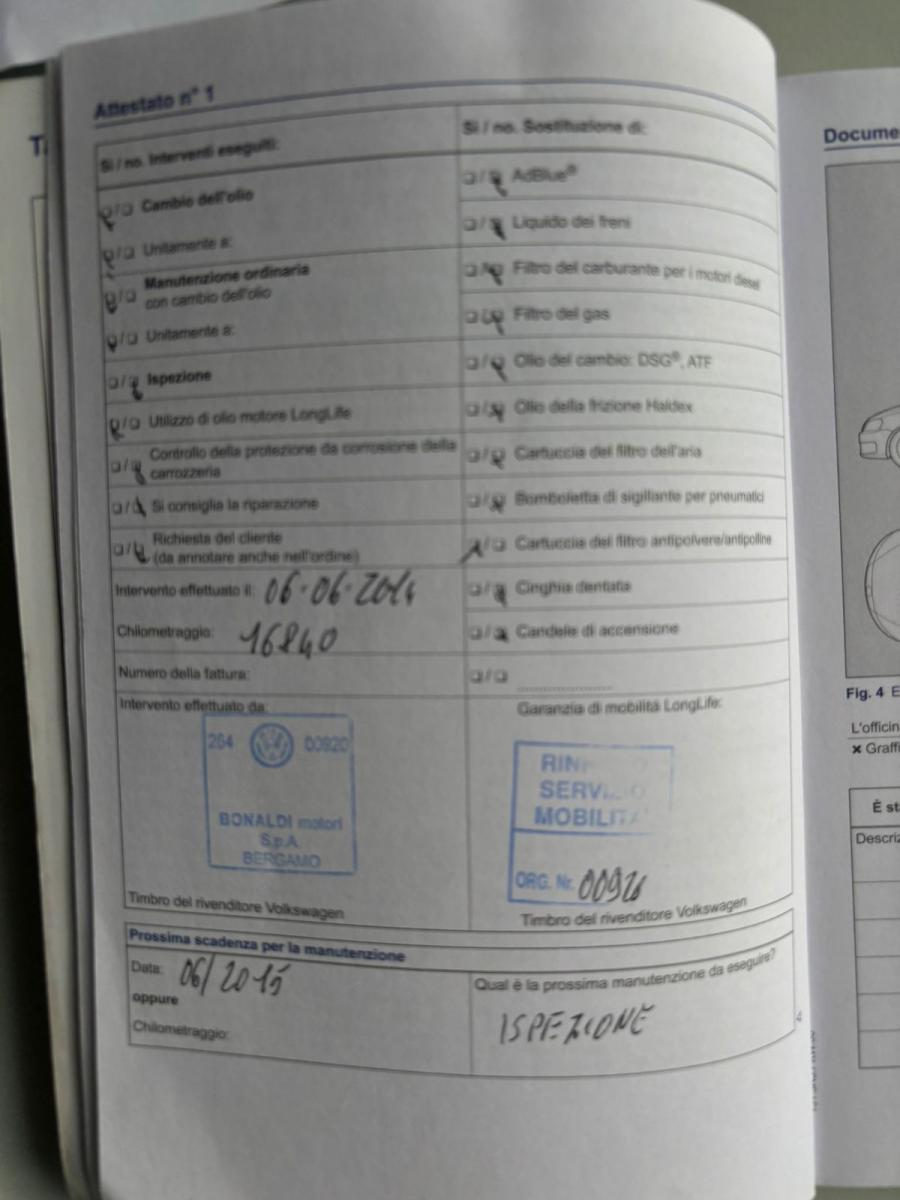 Attestato n° 1
Si / no. Interventi eseguiti:
Cambio dell'olio
Unitamente a:
Manutenzione ordinaria
con cambio dell'olio
Unitamente a:
Ispezione
Utilizzo di olio motore LongLife
Controllo della protezione da corrosione della
carrozzeria
Si consiglia la riparazione
Richiesta del cliente
(da annotare anche nell'ordine)
Intervento effettuato il: 06.06.2014
Chilometraggio: 16840
Numero della fattura:
Intervento effettuato da:
264 00920
BONALDI motori
S.p.A.
BERGAMO
Timbro del rivenditore Volkswagen
Si / no. Sostituzione di:
AdBlue®
Liquido dei freni
Filtro del carburante per i motori diesel
Filtro del gas
Olio del cambio: DSG®, ATF
Olio della frizione Haldex
Cartuccia del filtro dell'aria
Bomboletta di sigillante per pneumatici
Cartuccia del filtro antipolvere/antipolline
Cinghia dentata
Candele di accensione
Garanzia di mobilità LongLife:
MOBILITA'
ORG. Nr.
Timbro del rivenditore Volkswagen
Prossima scadenza per la manutenzione
Data: 06/2015
oppure
Chilometraggio:
Qual è la prossima manutenzione da eseguire?
ISPEZIONE
4
Docume
Fig. 4 E
L'officin
× Graffi
È st
Descriz